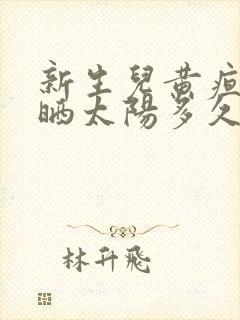 新生兒黃疸
晒太陽多久
林升飛